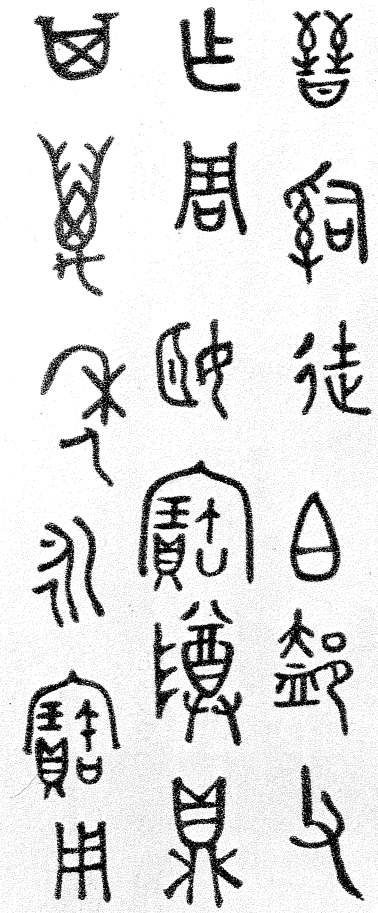 晉𤔲徒白郄父
乍周姬寶尊鼎
其萬年永寶用